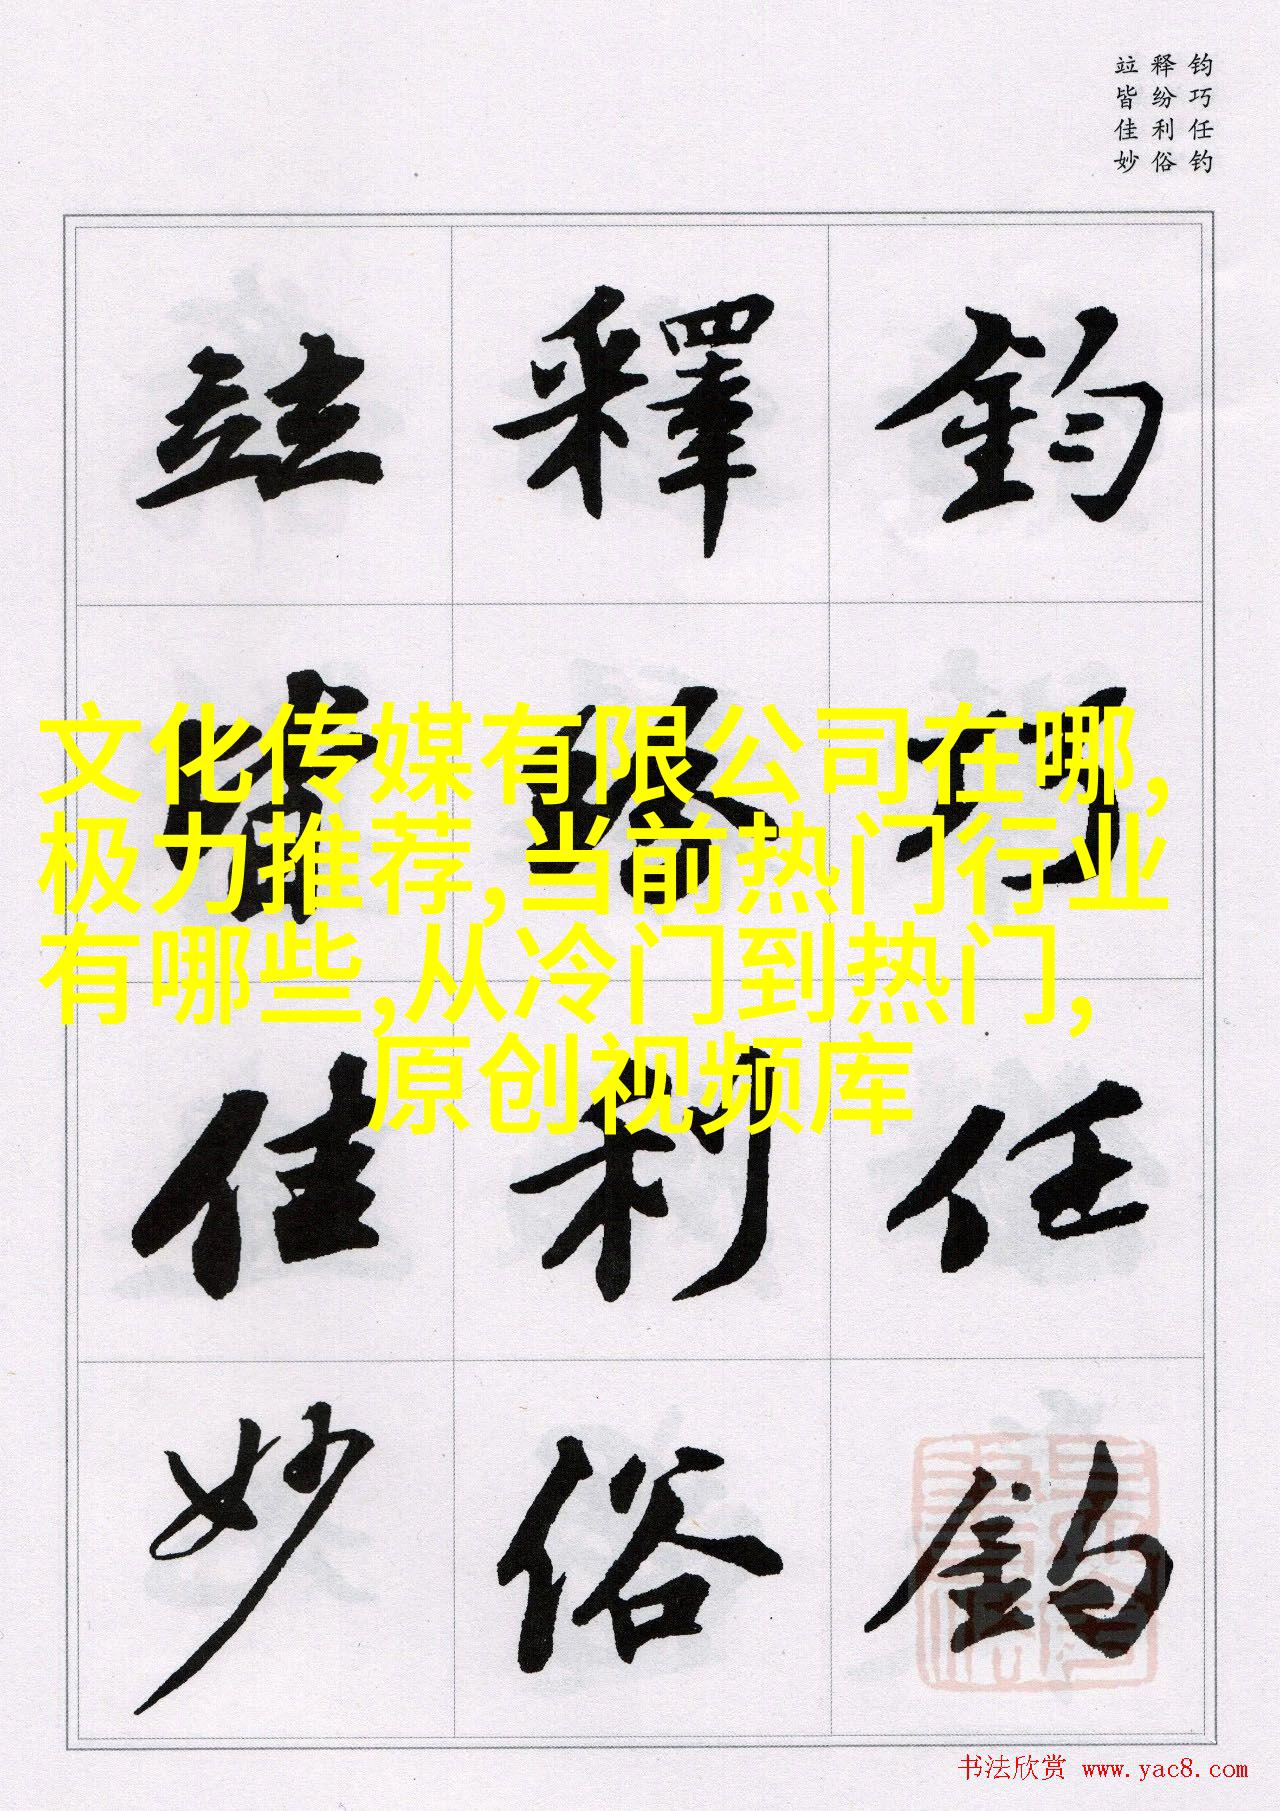 钧巧任钓
释纷利俗
竝皆佳妙
鈞
釋
竝
巧
紛
皆
任
利
佳
釣
俗
妙
文化传媒有限公司在哪,
极力推荐,当前热门行业
有哪些,从冷门到热门,
原创视频库
书法欣赏 www.yac8.com